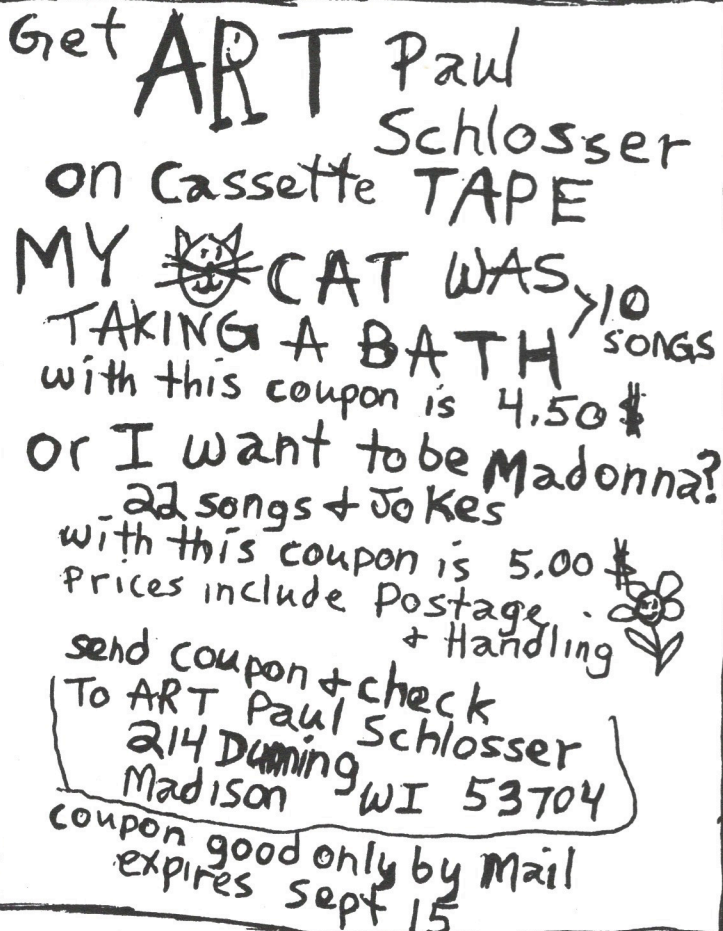 Get ART Paul
Schlosser
on Cassette TAPE
MY CAT WAS
TAKING A BATH > 10
SONGS
with this coupon is 4.50 $
or I want to be Madonna?
22 songs + Jokes
with this coupon is 5.00 $
Prices include Postage
+ Handling
send coupon + check
To ART Paul Schlosser
214
Madison WI 53704
coupon good only by Mail
expires sept 15